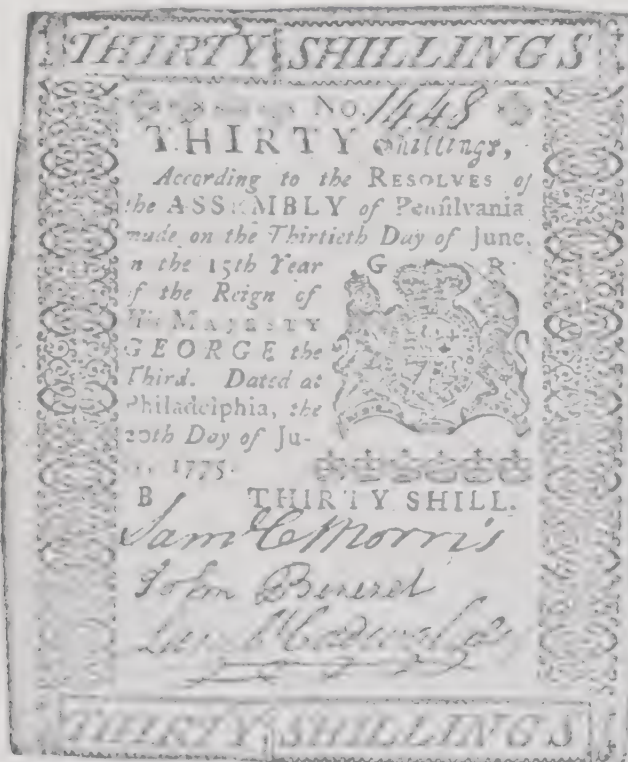 THIRTY SHILLINGS
No. 1448
THIRTY Shillings,
According to the RESOLVES of
the ASSEMBLY of Pensilvania
made on the Thirtieth Day of June,
in the 15th Year
of the Reign of
His MAJESTY
GEORGE the
Third. Dated at
Philadelphia, the
20th Day of Ju-
1775.
G R
B THIRTY SHILL.
Saml C Morris
John
THIRTY SHILLINGS